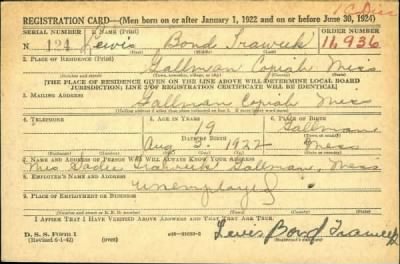 REGISTRATION CARD—(Men born on or after January 1, 1922 and on or before June 30, 1924)
SERIAL NUMBER 1. NAME (Print) ORDER NUMBER
N 124 Lewis Bond Traweek 11,936
2. PLACE OF RESIDENCE (Print)
Gallman Copiah Miss
(Town, township, village, or city) (County) (State)
[THE PLACE OF RESIDENCE GIVEN ON THE LINE ABOVE WILL DETERMINE LOCAL BOARD
JURISDICTION; LINE 2 OF REGISTRATION CERTIFICATE WILL BE IDENTICAL]
3. MAILING ADDRESS
Gallman Copiah Miss
4. TELEPHONE 5. AGE IN YEARS 6. PLACE OF BIRTH
19 Gallman
DATE OF BIRTH
Aug 5 1922 Miss
7. NAME AND ADDRESS OF PERSON WHO WILL ALWAYS KNOW YOUR ADDRESS
Mrs Traweek Gallman, Miss
8. EMPLOYER'S NAME AND ADDRESS
unemployed
9. PLACE OF EMPLOYMENT OR BUSINESS
I AFFIRM THAT I HAVE VERIFIED ABOVE ANSWERS AND THAT THEY ARE TRUE.
D. S. S. Form 1
(Revised 6-1-42) (over) Lewis Bond Traweek